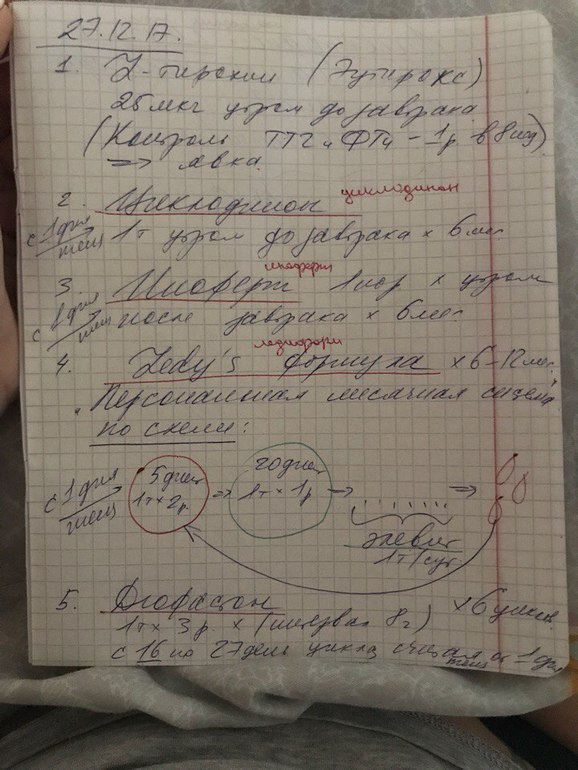 27.12.17.
1. L-тироксин (Эутирокс)
25 мкг утром до завтрака
(Контроль ТТГ и ФТ4 – 1р в 8 нед)
⇒ явка.
циклодинон
2. Циклодинон
с 1 дня
менс
1т утром до завтрака × 6 мес.
иноферт
3. Иноферт 1 пор × утром
с 1 дня
менс
после завтрака × 6 мес.
ледисформ
4. Ledy's формула × 6-12 мес.
"Персональная месячная система"
по схеме:
с 1 дня
менс
5 дней
1т × 2р
⇒
20 дней
1т × 1р
⇒
⇒
элевит
1т/сут
5. Дюфастон × 6 циклов.
1т × 3р × (интервал 8ч)
с 16 по 27 день цикла считая от 1 дня
менс